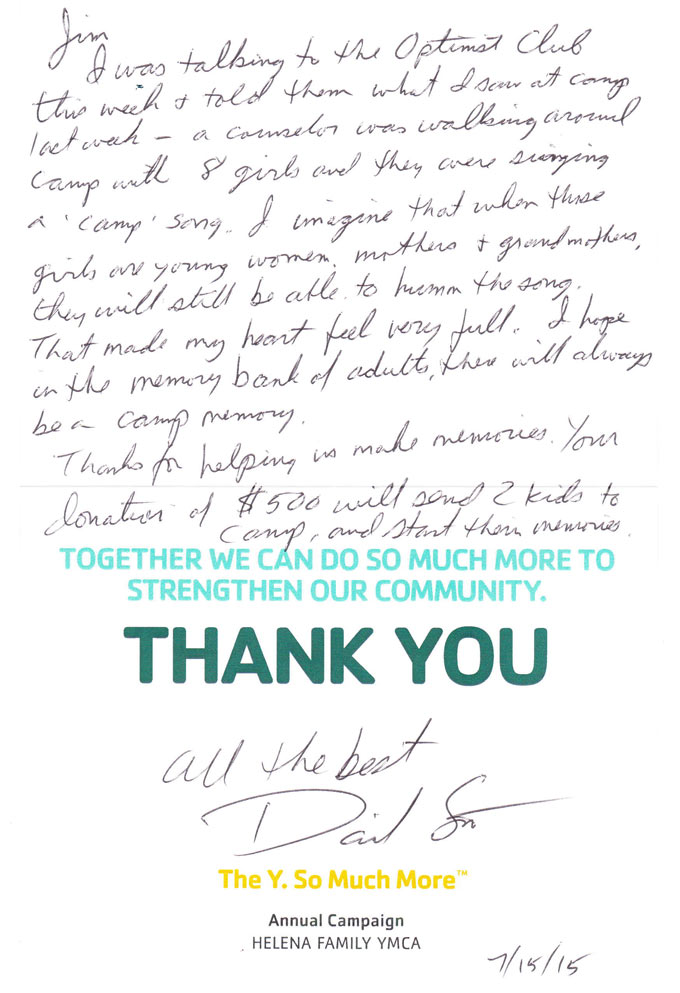 Jim
I was talking to the Optimist Club
this week & told them what I saw at camp
last week – a counselor was walking around
camp with 8 girls and they were singing
a 'camp' song. I imagine that when those
girls are young women, mothers & grandmothers,
they will still be able to humm the song.
That made my heart feel very full. I hope
in the memory bank of adults, there will always
be a camp memory.
Thanks for helping us make memories. Your
donation of $500 will send 2 kids to
camp, and start them memories.
TOGETHER WE CAN DO SO MUCH MORE TO
STRENGTHEN OUR COMMUNITY.
THANK YOU
All the best
David
The Y. So Much More™
Annual Campaign
HELENA FAMILY YMCA
7/15/15